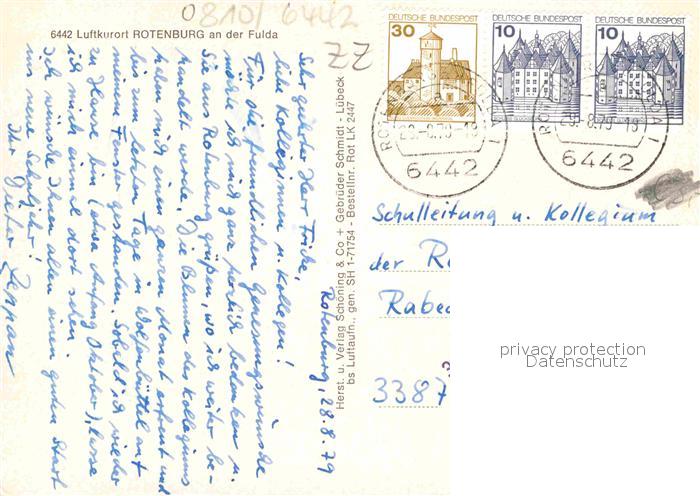 0810/6442
6442 Luftkurort ROTENBURG an der Fulda
ZZ
Herst. u. Verlag Schöning & Co + Gebrüder Schmidt - Lübeck
bs Luftaufn., gen: SH 1-71754 - Bestellnr. Rot LK 2447
Rotenburg, 28.8.79
Sehr geehrter Herr Fricke,
liebe Kolleginnen u. Kollegen!
Für die freundlichen Genesungswünsche
möchte ich mich ganz herzlich bedanken u.
Sie aus Rotenburg grüßen, wo ich weiter be-
handelt werde. Die Blumen des Kollegiums
haben mich einen ganzen Monat erfreut und
bis zum letzten Tage in Wolfenbüttel auf
meinem Fenster gestanden. Sobald ich wieder
zu Hause bin (etwa Anfang Oktober), lasse
ich mich einmal dort sehen.
Ich wünsche Ihnen allen einen guten Start
ins neue Schuljahr!
Ihr Dieter
DEUTSCHE BUNDESPOST
30
DEUTSCHE BUNDESPOST
10
DEUTSCHE BUNDESPOST
10
28.-8.79-19
6442
28.-8.79-19
6442
Schulleitung u. Kollegium
der R
Rabe
3387
privacy protection
Datenschutz